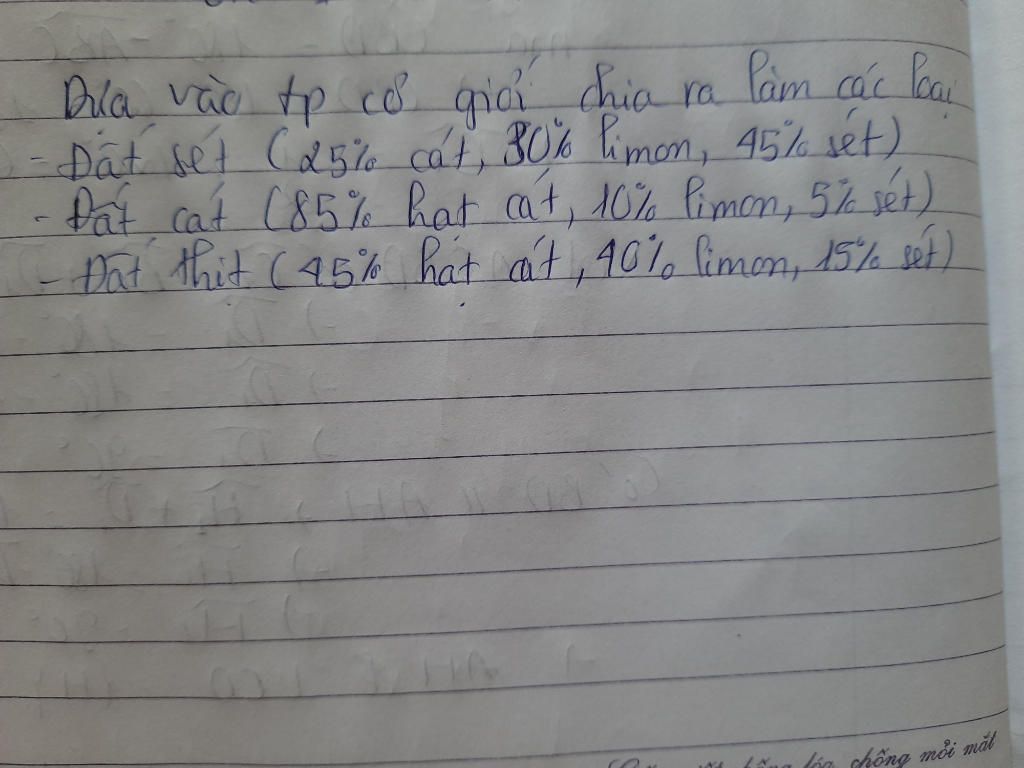 Dựa vào tp cơ giới chia ra làm các loại
- Đất sét (25% cát, 30% limon, 45% sét)
- Đất cát (85% hạt cát, 10% limon, 5% sét)
- Đất thịt (45% hạt cát, 40% limon, 15% sét)
chống mỏi mắt